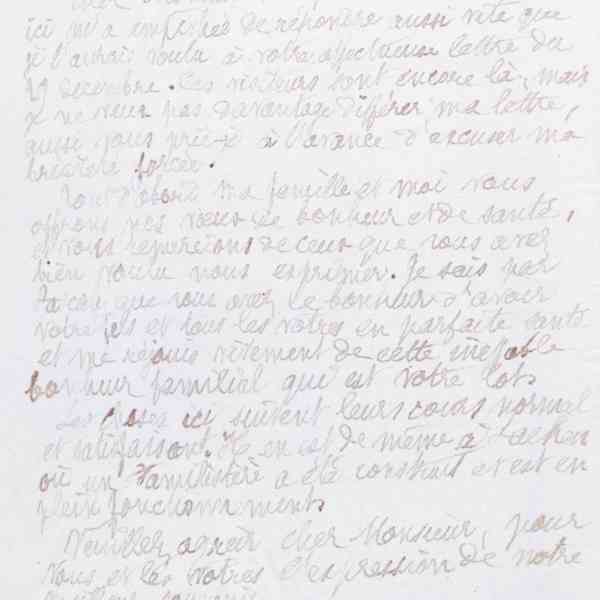 ici m'a empêché de répondre aussi vite que
je l'aurais voulu à votre affectueuse lettre du
29 décembre. Ces visiteurs sont encore là, mais
je ne veux pas davantage différer ma lettre,
aussi vous prié-je à l'avance d'excuser ma
brièveté forcée.
Tout d'abord ma famille et moi vous
offrons nos vœux de bonheur et de santé,
et vous remercions de ceux que vous avez
bien voulu nous exprimer. Je sais par
Jacou que vous avez le bonheur d'avoir
votre fils et tous les vôtres en parfaite santé
et me réjouis vivement de cette ineffable
bonheur familial qui est votre lot.
Les choses ici suivent leurs cours normal
et satisfaisant. Il en est de même à Laeken
où un Familistère a été construit et est en
plein fonctionnement.
Veuillez agréer cher Monsieur, pour
vous et les vôtres l'expression de notre
meilleur souvenir